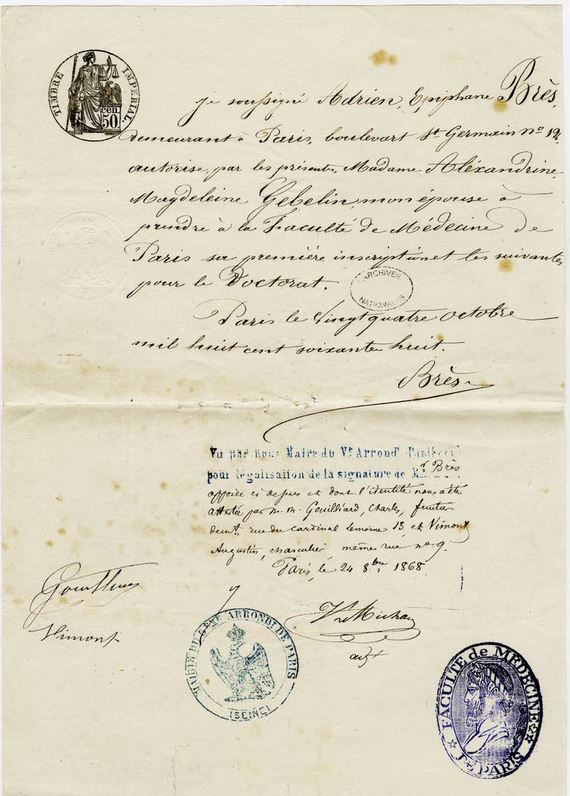 TIMBRE IMPERIAL
50 cen
Je soussigné Adrien, Epiphane Brès,
demeurant à Paris, boulevart St Germain nº 12,
autorise, par les présentes, Madame Aléxandrine
Magdeleine Gebelin, mon épouse à
prendre à la Faculté de Médecine de
Paris sa première inscription et les suivantes
pour le Doctorat.
ARCHIVES
NATIONALES
Paris le Vingt quatre Octobre
mil huit cent soixante huit.
Brès
Vu par Nous Maire du Vᵉ Arrondᵗ
pour légalisation de la signature de M. Brès
apposée ci dessus et dont l'identité nous a été
attestée par M. M. Gouilliard, Charles, fruitier
demᵗ, rue du Cardinal Lemoine 13, et Vimont
Augustin, charcutier, même rue nº 9.
Paris, le 24 8bre 1868.
Vimont
adjt
MAIRIE DU 5EME ARRONDT DE PARIS
(SEINE)
FACULTÉ de MÉDECINE
De PARIS